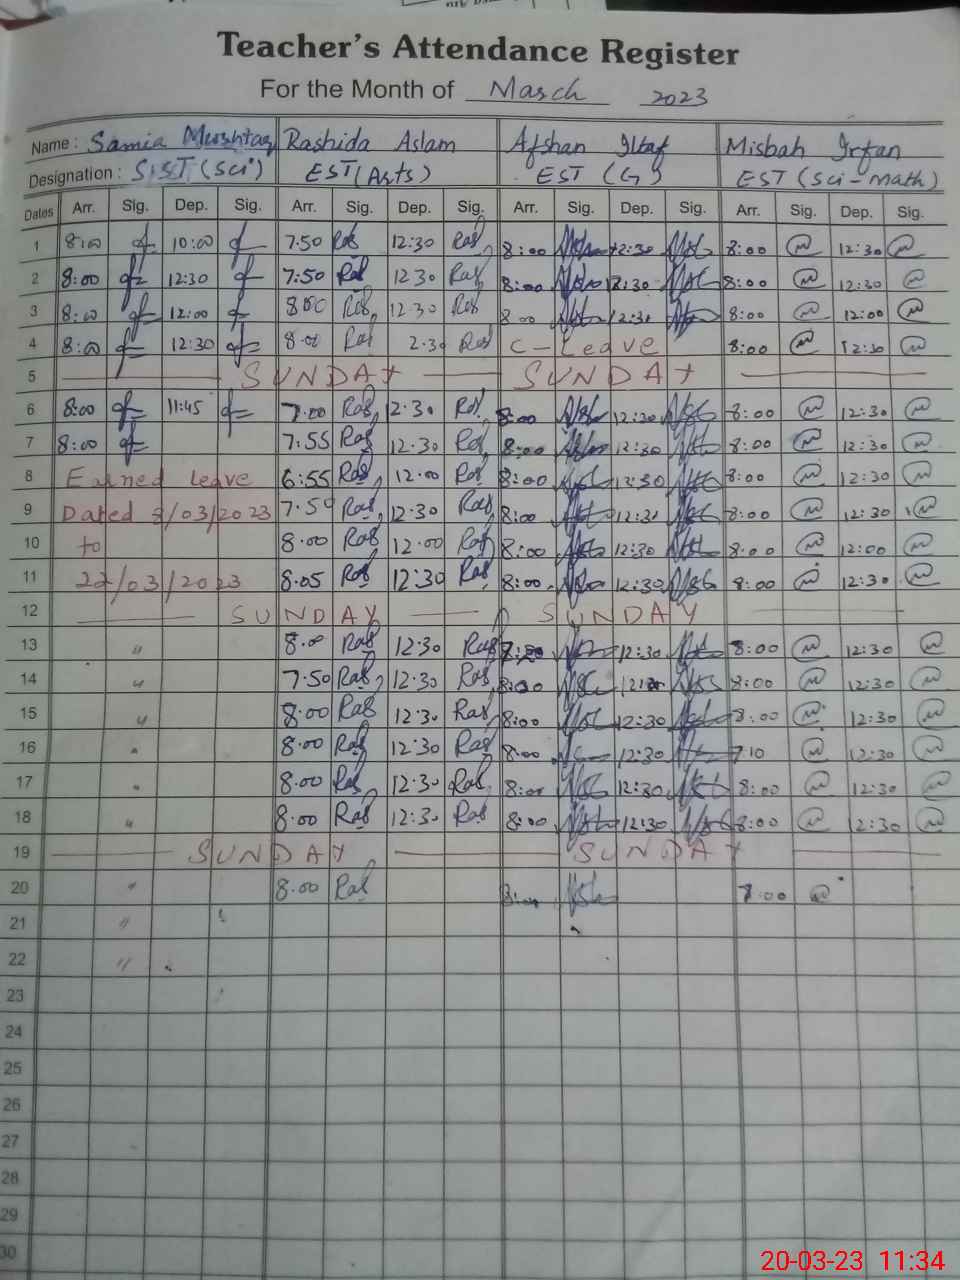 Teacher's Attendance Register
For the Month of March 2023
Name : Samia Mushtaq Rashida Aslam Afshan Iltaf Misbah Irfan
Designation : S.S.T (Sci) EST (Arts) EST (G) EST (Sci - Math)
Dates Arr. Sig. Dep. Sig. Arr. Sig. Dep. Sig. Arr. Sig. Dep. Sig. Arr. Sig. Dep. Sig.
1 8:00 10:00 7.50 Ras 12:30 Ras 8:00 12:30 8:00 12:30
2 8:00 12:30 7:50 Ras 12.30 Ras 8:00 12:30 8:00 12:30
3 8:00 12:00 8:00 Ras 12:30 Ras 8:00 12:30 8:00 12:00
4 8:00 12:30 8.00 Ras 2.30 Ras C-Leave 8:00 12:30
5 SUNDAY SUNDAY
6 8:00 11:45 7.00 Ras 12.30 Ras 8:00 12:30 8:00 12:30
7 8:00 7:55 Ras 12.30 Ras 8:00 12:30 8:00 12:30
8 Earned Leave 6:55 Ras 12.00 Ras 8:00 12:30 8:00 12:30
9 Dated 8/03/2023 7.50 Ras 12:30 Ras 8:00 12:30 8:00 12:30
10 to 8.00 Ras 12.00 Ras 8:00 12:30 8:00 12:00
11 22/03/2023 8.05 Ras 12:30 Ras 8:00 12:30 8:00 12:30
12 SUNDAY SUNDAY
13 " 8.00 Ras 12:30 Ras 12:30 8:00 12:30
14 " 7.50 Ras 12.30 Ras 8:00 8:00 12:30
15 " 8.00 Ras 12.30 Ras 8:00 12:30 8:00 12:30
16 " 8.00 Ras 12:30 Ras 8:00 12:30 7:10 12:30
17 " 8.00 Ras 12.30 Ras 8:00 12:30 8:00 12:30
18 " 8.00 Ras 12.30 Ras 8:00 12:30 8:00 12:30
19 SUNDAY SUNDAY
20 " 8.00 Ras 8:00 8:00
21 "
22 "
23
24
25
26
27
28
29
30
20-03-23 11:34